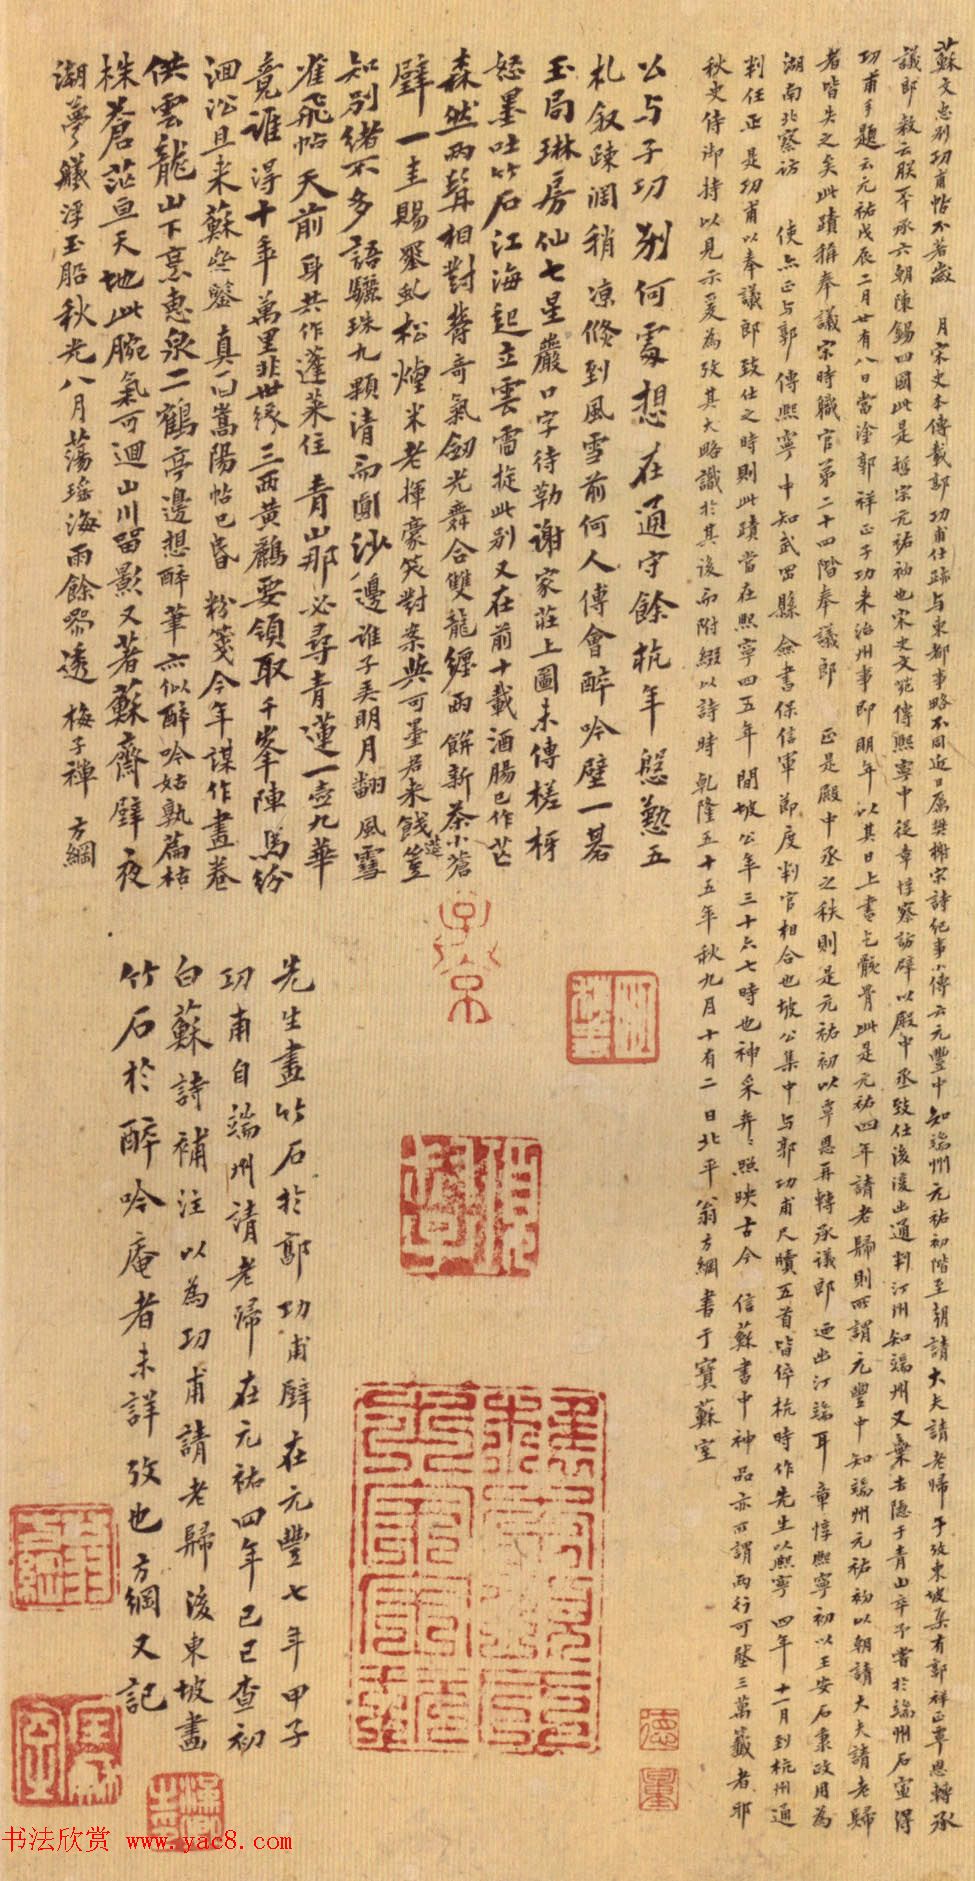 蘇文忠別功甫帖不著歲 月宋史本傳載郭功甫仕蹟與東都事略不同近日厲樊榭宋詩紀事小傳云元豐中知端州元祐初階至朝請大夫請老歸予攷東坡集有郭祥正覃恩轉承
議郎敕云朕丕承六朝陳錫四國此是哲宗元祐初也宋史文苑傳熙寧中從章惇察訪辟以殿中丞致仕後復出通判汀州知端州又棄去隱于青山卒予嘗於端州石室得
功甫手題云元祐戊辰二月廿有八日當塗郭祥正子功來治州事即明年以其日上書乞骸骨此是元祐四年請老歸則所謂元豐中知端州元祐初以朝請大夫請老歸
者皆失之矣此蹟稱奉議宋時職官第二十四階奉議郎 正是殿中丞之秩則是元祐初以覃恩再轉承議郎 迺出汀端耳章惇熙寧初以王安石秉政用為
湖南北察訪 使亦正与郭傳熙寧中知武岡縣僉書保信軍節度判官相合也坡公集中与郭功甫尺牘五首皆倅杭時作先生以熙寧四年十一月到杭州通
判任正是功甫以奉議郎致仕之時則此蹟當在熙寧四五年間坡公年三十六七時也神采奕奕照映古今信蘇書中神品亦可謂兩行可壓三萬籤者耶
秋史侍御持以見示爰為攷其大略識於其後而附綴以詩時乾隆五十五年秋九月十有二日北平翁方綱書于寶蘇室
公与子功別何處想在通守餘杭年慇懃五
札叙疎濶稍涼倏到風雪前何人傅會醉吟壁一碁
玉局琳房仙七星巖口字待勒謝家莊上圖未傳槎枒
怒墨吐竹石江海起立雲雷旋此別又在前十載酒腸已作芒
森然兩髯相對聳奇氣劒光舞合雙龍纏雨餅新茶小蒼
璧一圭賜墨虬松煙米老揮豪筴對案與可墨君來餞筵
知別緒不多語驪珠九顆清而圓沙邊誰子弄明月翻風雪
隺飛帖天前身共作蓬萊住青山那必尋青蓮一壺九華
竟誰得十年萬里非世緣三西黃鸝要領取千峯陣馬紛
洄沿且来蘇齋鑒真面嵩陽帖已昏粉箋今年謀作畫卷
供雲龍山下烹惠泉二鶴亭邊想醉筆亦似醉吟姑孰篇枯
株蒼茫亘天地此腕氣可迴山川留影又著蘇齋壁夜
湖夢艤浮玉船秋光八月蕩瑤海雨餘黎透梅子禪 方綱
先生畫竹石於郭功甫壁在元豐七年甲子
功甫自端州請老歸在元祐四年己巳查初
白蘇詩補注以為功甫請老歸後東坡畫
竹石於醉吟庵者未詳攷也方綱又記
德量
书法欣赏 www.yac8.com